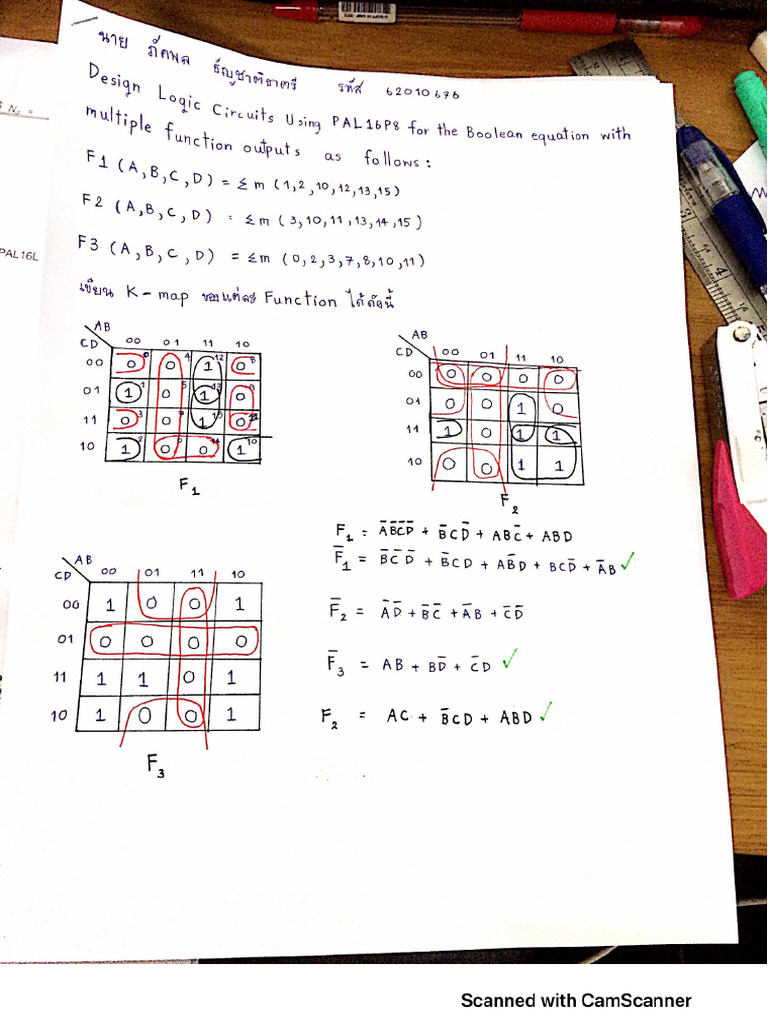 นาย ภัคพล ธัญชาติธาดารี รหัส 62010676
Design Logic Circuits Using PAL16P8 for the Boolean equation with
multiple function outputs as follows:
F1 (A,B,C,D) = Σm (1,2,10,12,13,15)
F2 (A,B,C,D) = Σm (3,10,11,13,14,15)
F3 (A,B,C,D) = Σm (0,2,3,7,8,10,11)
PAL16L
เขียน K-map ของแต่ละ Function ได้ดังนี้
AB
CD 00 01 11 10
00 0 0 4 1 12 0 8
01 1 1 0 5 1 13 0 9
11 0 3 0 7 1 15 0 11
10 1 2 0 6 0 14 1 10
F1
AB
CD 00 01 11 10
00 0 0 0 0
01 0 0 1 0
11 1 0 1 1
10 0 0 1 1
F2
F1 = A̅B̅C̅D + B̅CD̅ + ABC̅ + ABD
F̅1 = B̅C̅D̅ + B̅CD + AB̅D + BCD̅ + A̅B ✓
F̅2 = A̅D̅ + B̅C̅ + A̅B + C̅D̅
F̅3 = AB + BD̅ + C̅D ✓
F2 = AC + B̅CD + ABD ✓
AB
CD 00 01 11 10
00 1 0 0 1
01 0 0 0 0
11 1 1 0 1
10 1 0 0 1
F3
Scanned with CamScanner